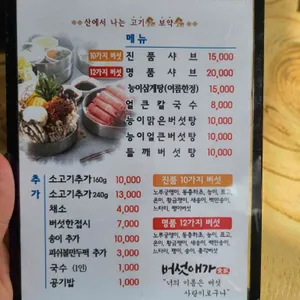 산에서 나는 고기 보약
메뉴
10가지 버섯 진품샤브 15,000
12가지 버섯 명품샤브 20,000
능이삼계탕(여름한정) 15,000
얼큰칼국수 8,000
능이맑은버섯탕 10,000
능이얼큰버섯탕 10,000
들깨버섯탕 10,000
추가
소고기추가160g 10,000
소고기추가240g 13,000
채소 4,000
버섯한접시 7,000
송이 추가 10,000
피쉬볼만두떡 추가 3,000
국수 (1인) 3,000
공기밥 1,000
진품 10가지 버섯
명품 12가지 버섯
버섯애가
"너의 이름은 버섯
사랑이로구나"